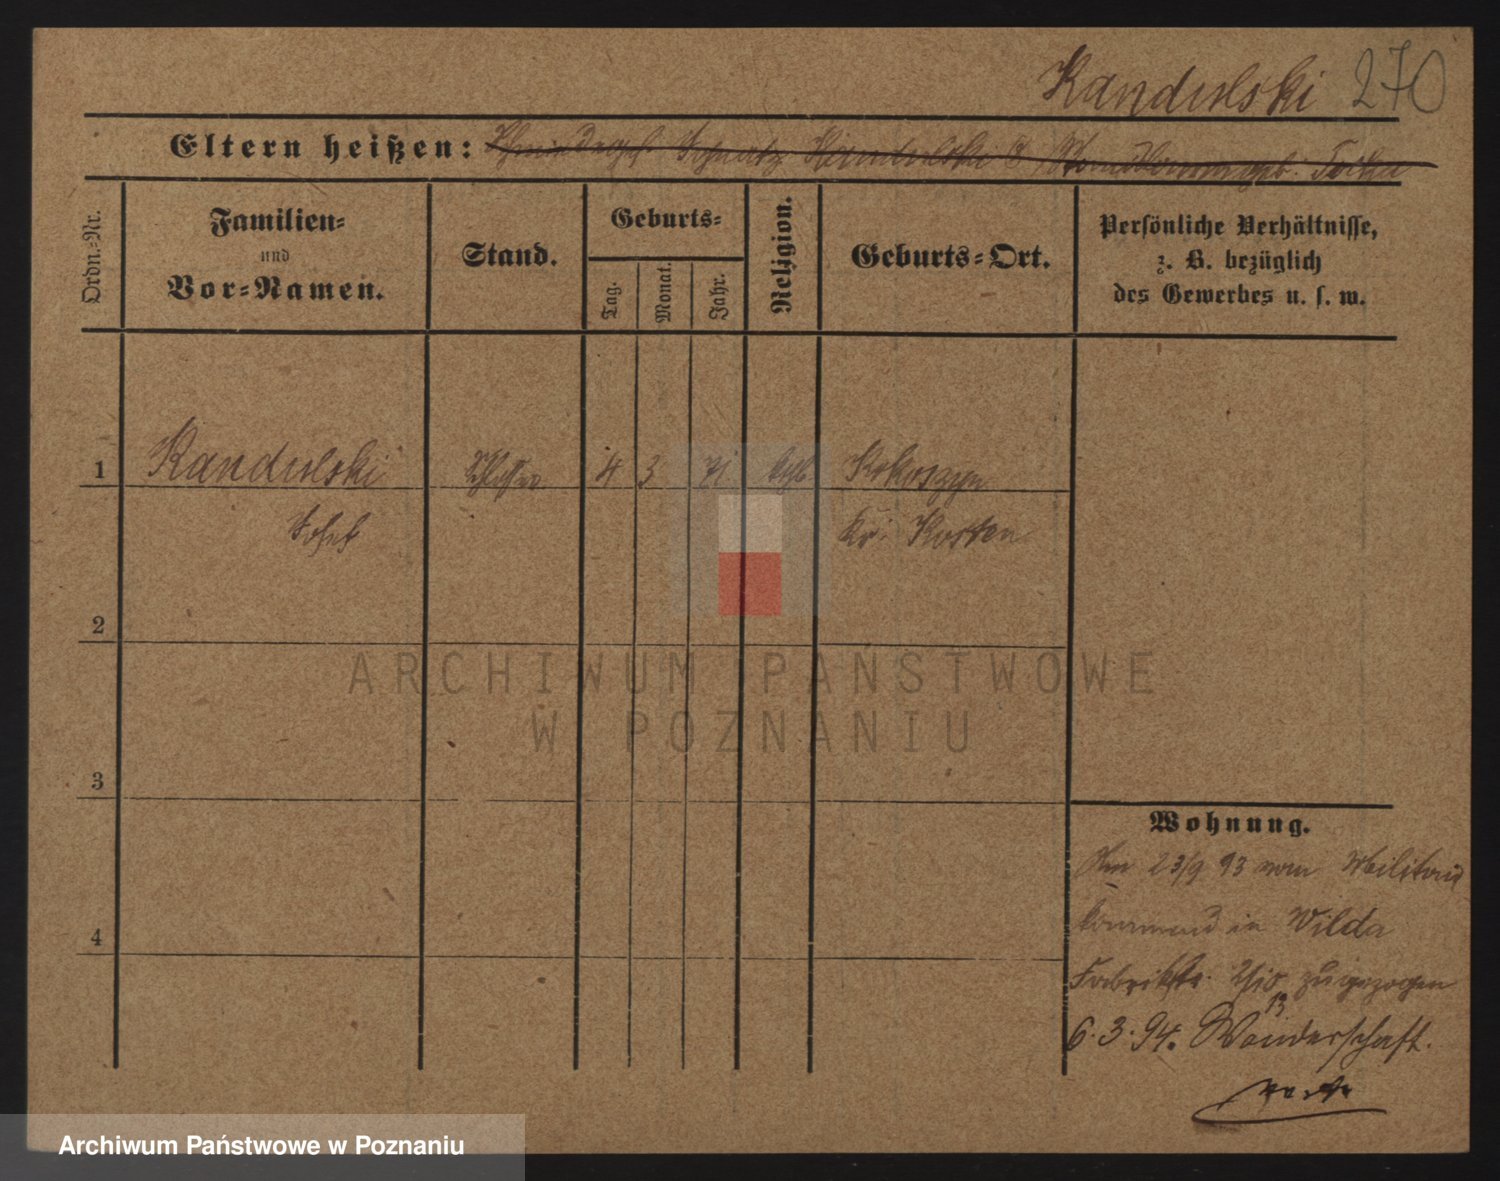 Kandulski 270
Eltern heißen: Ignatz Kandulski & geb.
Ordn.-Nr.
Familien-
und
Vor-Namen.
Stand.
Geburts-
Tag.
Monat.
Jahr.
Religion.
Geburts-Ort.
Persönliche Verhältnisse,
z. B. bezüglich
des Gewerbes u. s. w.
1 Kandulski Schlosser 4 3 71 kath. Kokoszyn
Josef Kr. Kosten
2
3
4
Wohnung.
Am 23/9 93 vom Militair
kommend in Wilda
Fabrikstr. zugezogen
13
6.3.94. Wanderschaft.
ARCHIWUM PAŃSTWOWE
W POZNANIU
Archiwum Państwowe w Poznaniu